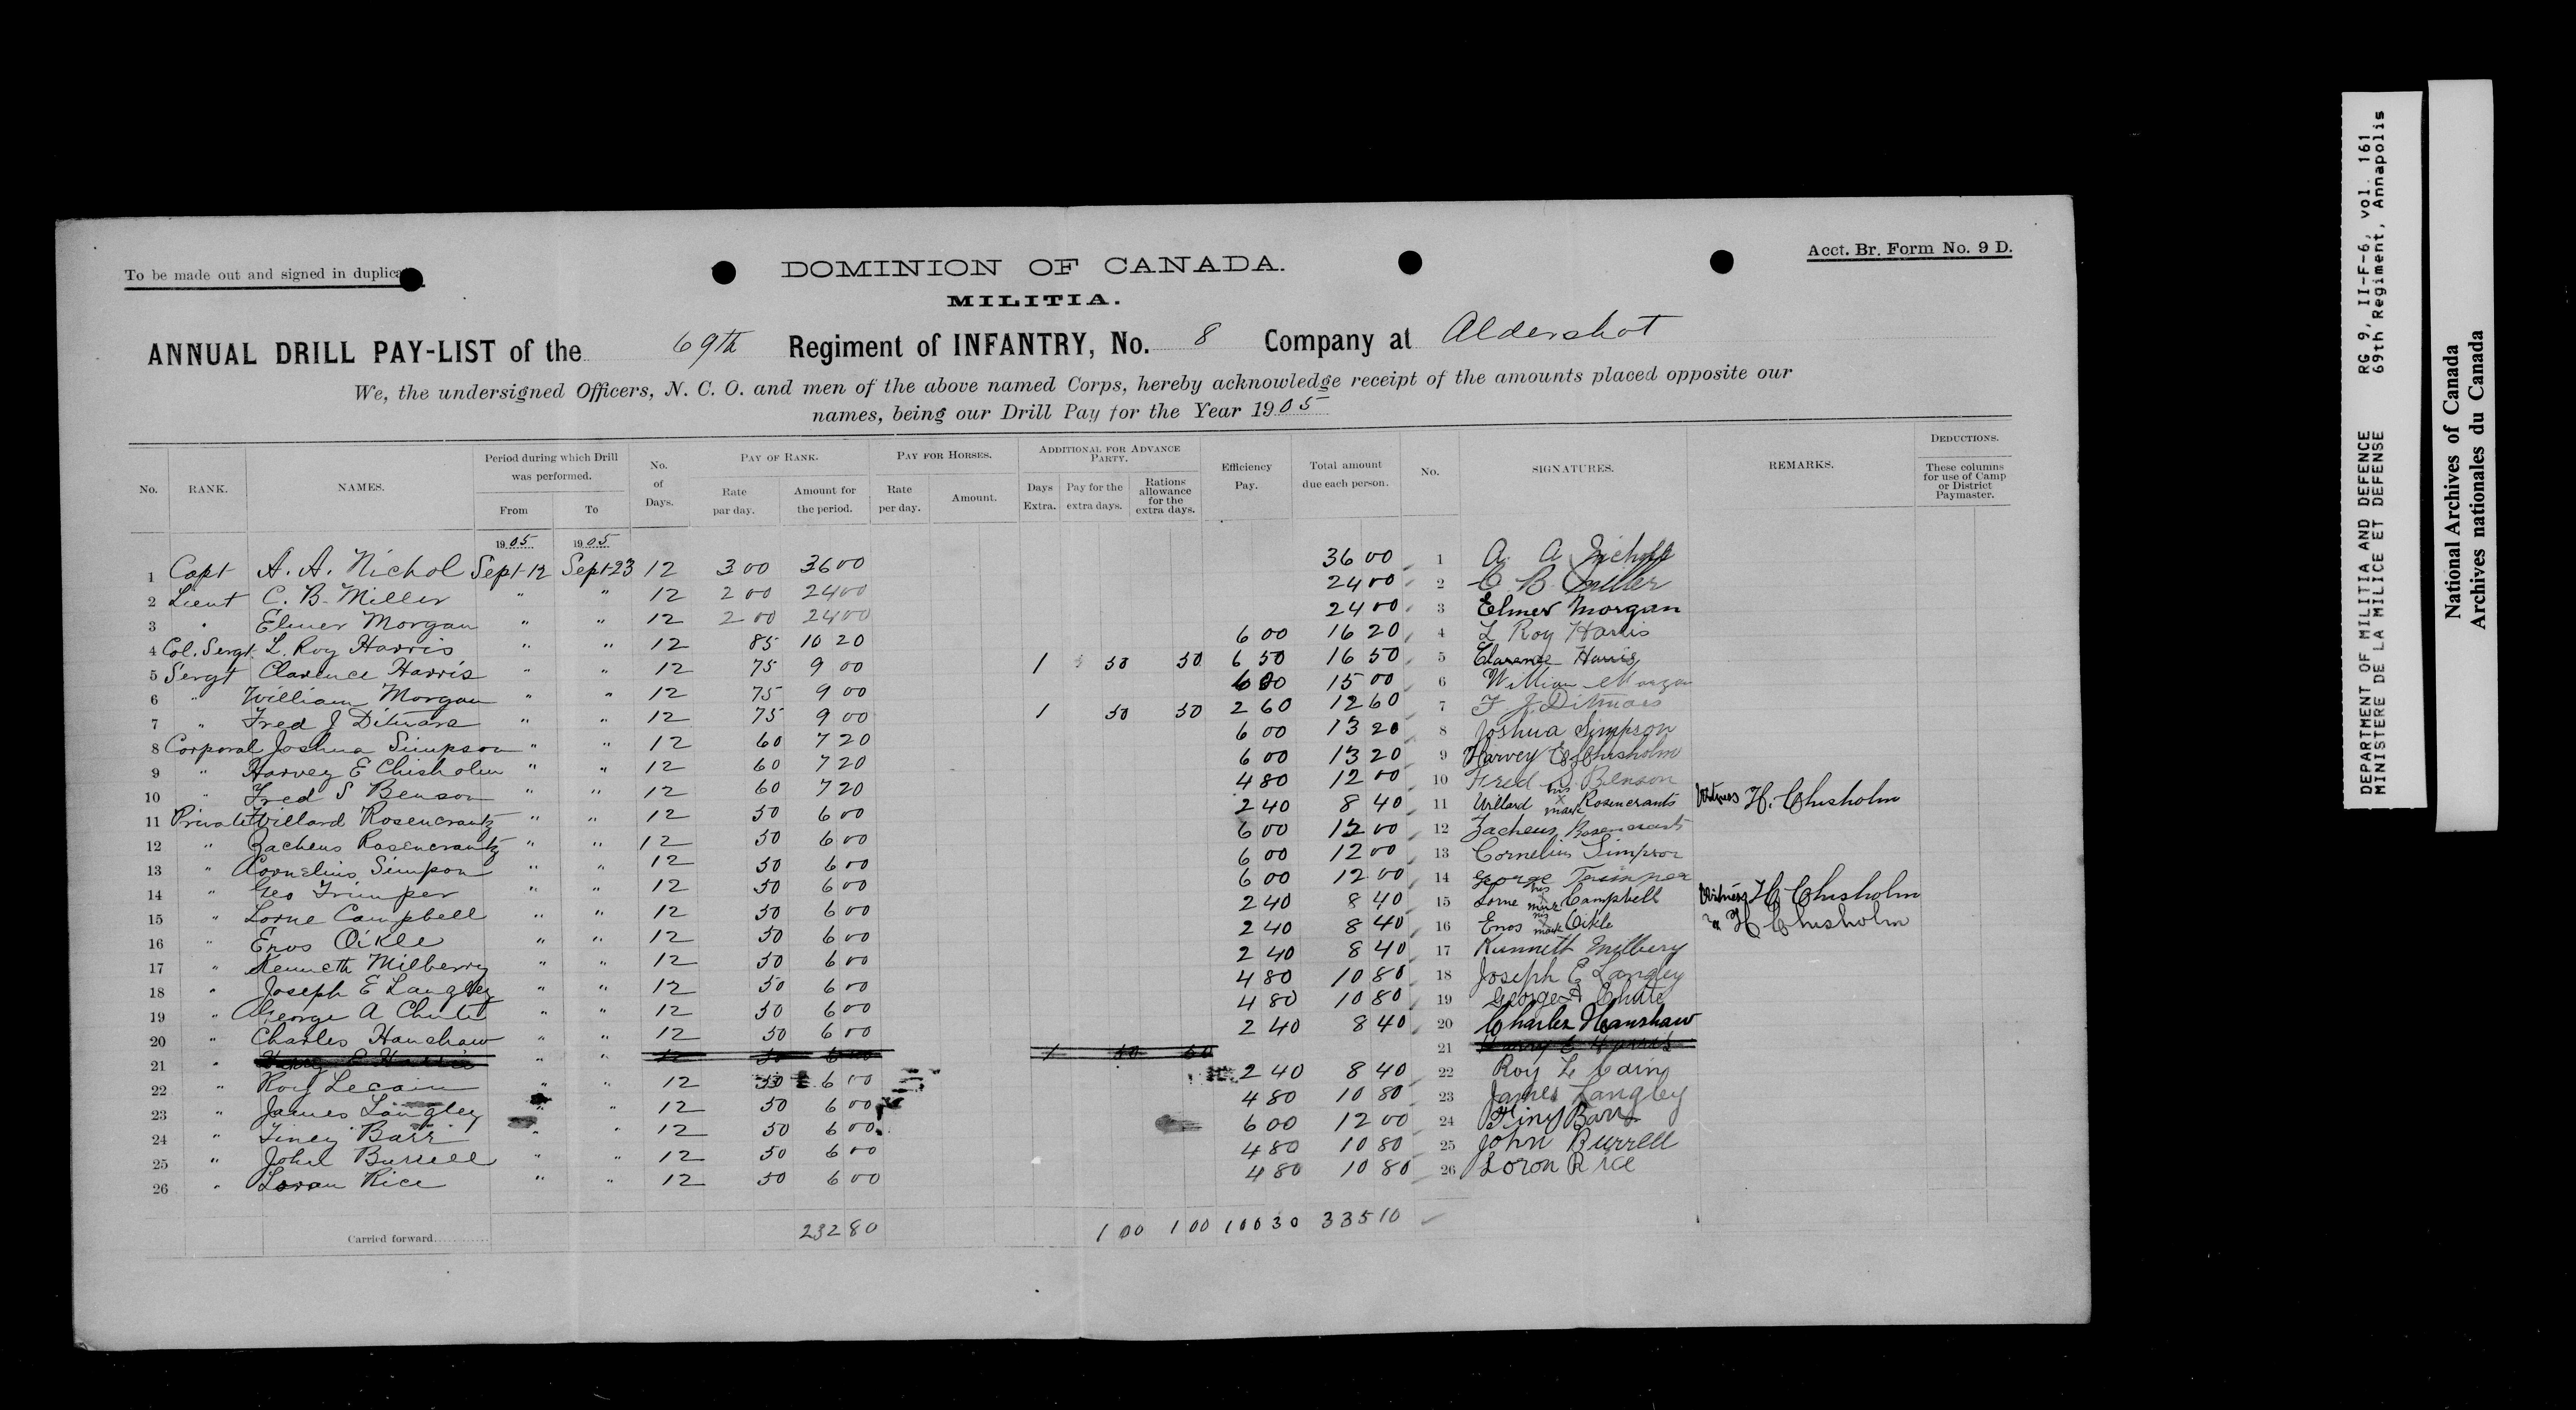 To be made out and signed in duplica
DOMINION OF CANADA.
Acct. Br. Form No. 9 D.
MILITIA.
ANNUAL DRILL PAY-LIST of the 69th Regiment of INFANTRY, No. 8 Company at Aldershot
We, the undersigned Officers, N. C. O. and men of the above named Corps, hereby acknowledge receipt of the amounts placed opposite our
names, being our Drill Pay for the Year 1905
No. RANK. NAMES. Period during which Drill was performed. From To No. of Days. PAY OF RANK. Rate par day. Amount for the period. PAY FOR HORSES. Rate per day. Amount. ADDITIONAL FOR ADVANCE PARTY. Days Extra. Pay for the extra days. Rations allowance for the extra days. Efficiency Pay. Total amount due each person. No. SIGNATURES. REMARKS. DEDUCTIONS. These columns for use of Camp or District Paymaster.
1905 1905
1 Capt A. A. Nichol Sept-12 Sept-23 12 3 00 36 00 36 00 1 A. A. Nicholl
2 Lieut C. B. Miller " " 12 2 00 24 00 24 00 2 C. B. Miller
3 " Elmer Morgan " " 12 2 00 24 00 24 00 3 Elmer Morgan
4 Col. Sergt. L. Roy Harris " " 12 85 10 20 6 00 16 20 4 L Roy Harris
5 Sergt Clarence Harris " " 12 75 9 00 1 50 50 6 50 16 50 5 Clarence Harris
6 " William Morgan " " 12 75 9 00 6 00 15 00 6 William Morgan
7 " Fred J Ditmars " " 12 75 9 00 1 50 50 2 60 12 60 7 F J. Ditmars
8 Corporal Joshua Simpson " " 12 60 7 20 6 00 13 20 8 Joshua Simpson
9 " Harvey E Chisholm " " 12 60 7 20 6 00 13 20 9 Harvey E Chisholm
10 " Fred S Benson " " 12 60 7 20 4 80 12 00 10 Fred S. Benson
11 Private Willard Rosencrantz " " 12 50 6 00 2 40 8 40 11 Willard his x mark Rosencrants Witness H. Chisholm
12 " Zacheus Rosencrantz " " 12 50 6 00 6 00 12 00 12 Zacheus Rosencrants
13 " Cornelius Simpson " " 12 50 6 00 6 00 12 00 13 Cornelius Simpson
14 " Geo Trimper " " 12 50 6 00 6 00 12 00 14 George Trimper
15 " Lorne Campbell " " 12 50 6 00 2 40 8 40 15 Lorne his mark Campbell Witness H Chisholm
16 " Enos Oikle " " 12 50 6 00 2 40 8 40 16 Enos his mark Oikle " H Chisholm
17 " Kenneth Milberry " " 12 50 6 00 2 40 8 40 17 Kunneth Milbery
18 " Joseph E Langley " " 12 50 6 00 4 80 10 80 18 Joseph E Langley
19 " George A Chute " " 12 50 6 00 4 80 10 80 19 George A Chute
20 " Charles Hanshaw " " 12 50 6 00 2 40 8 40 20 Charles Hanshaw
21 " " " 12 50 6 00 1 50 50 21
22 " Roy Lecain " " 12 50 6 00 2 40 8 40 22 Roy Le Cain
23 " James Langley " " 12 50 6 00 4 80 10 80 23 James Langley
24 " Tiney Barr " " 12 50 6 00 6 00 12 00 24 Tiny Barr
25 " John Burrell " " 12 50 6 00 4 80 10 80 25 John Burrell
26 " Loran Rice " " 12 50 6 00 4 80 10 80 26 Loron Rice
Carried forward 232 80 1 00 1 00 100 30 335 10
DEPARTMENT OF MILITIA AND DEFENCE RG 9, II-F-6, vol. 161
MINISTERE DE LA MILICE ET DEFENSE 69th Regiment, Annapolis
National Archives of Canada
Archives nationales du Canada